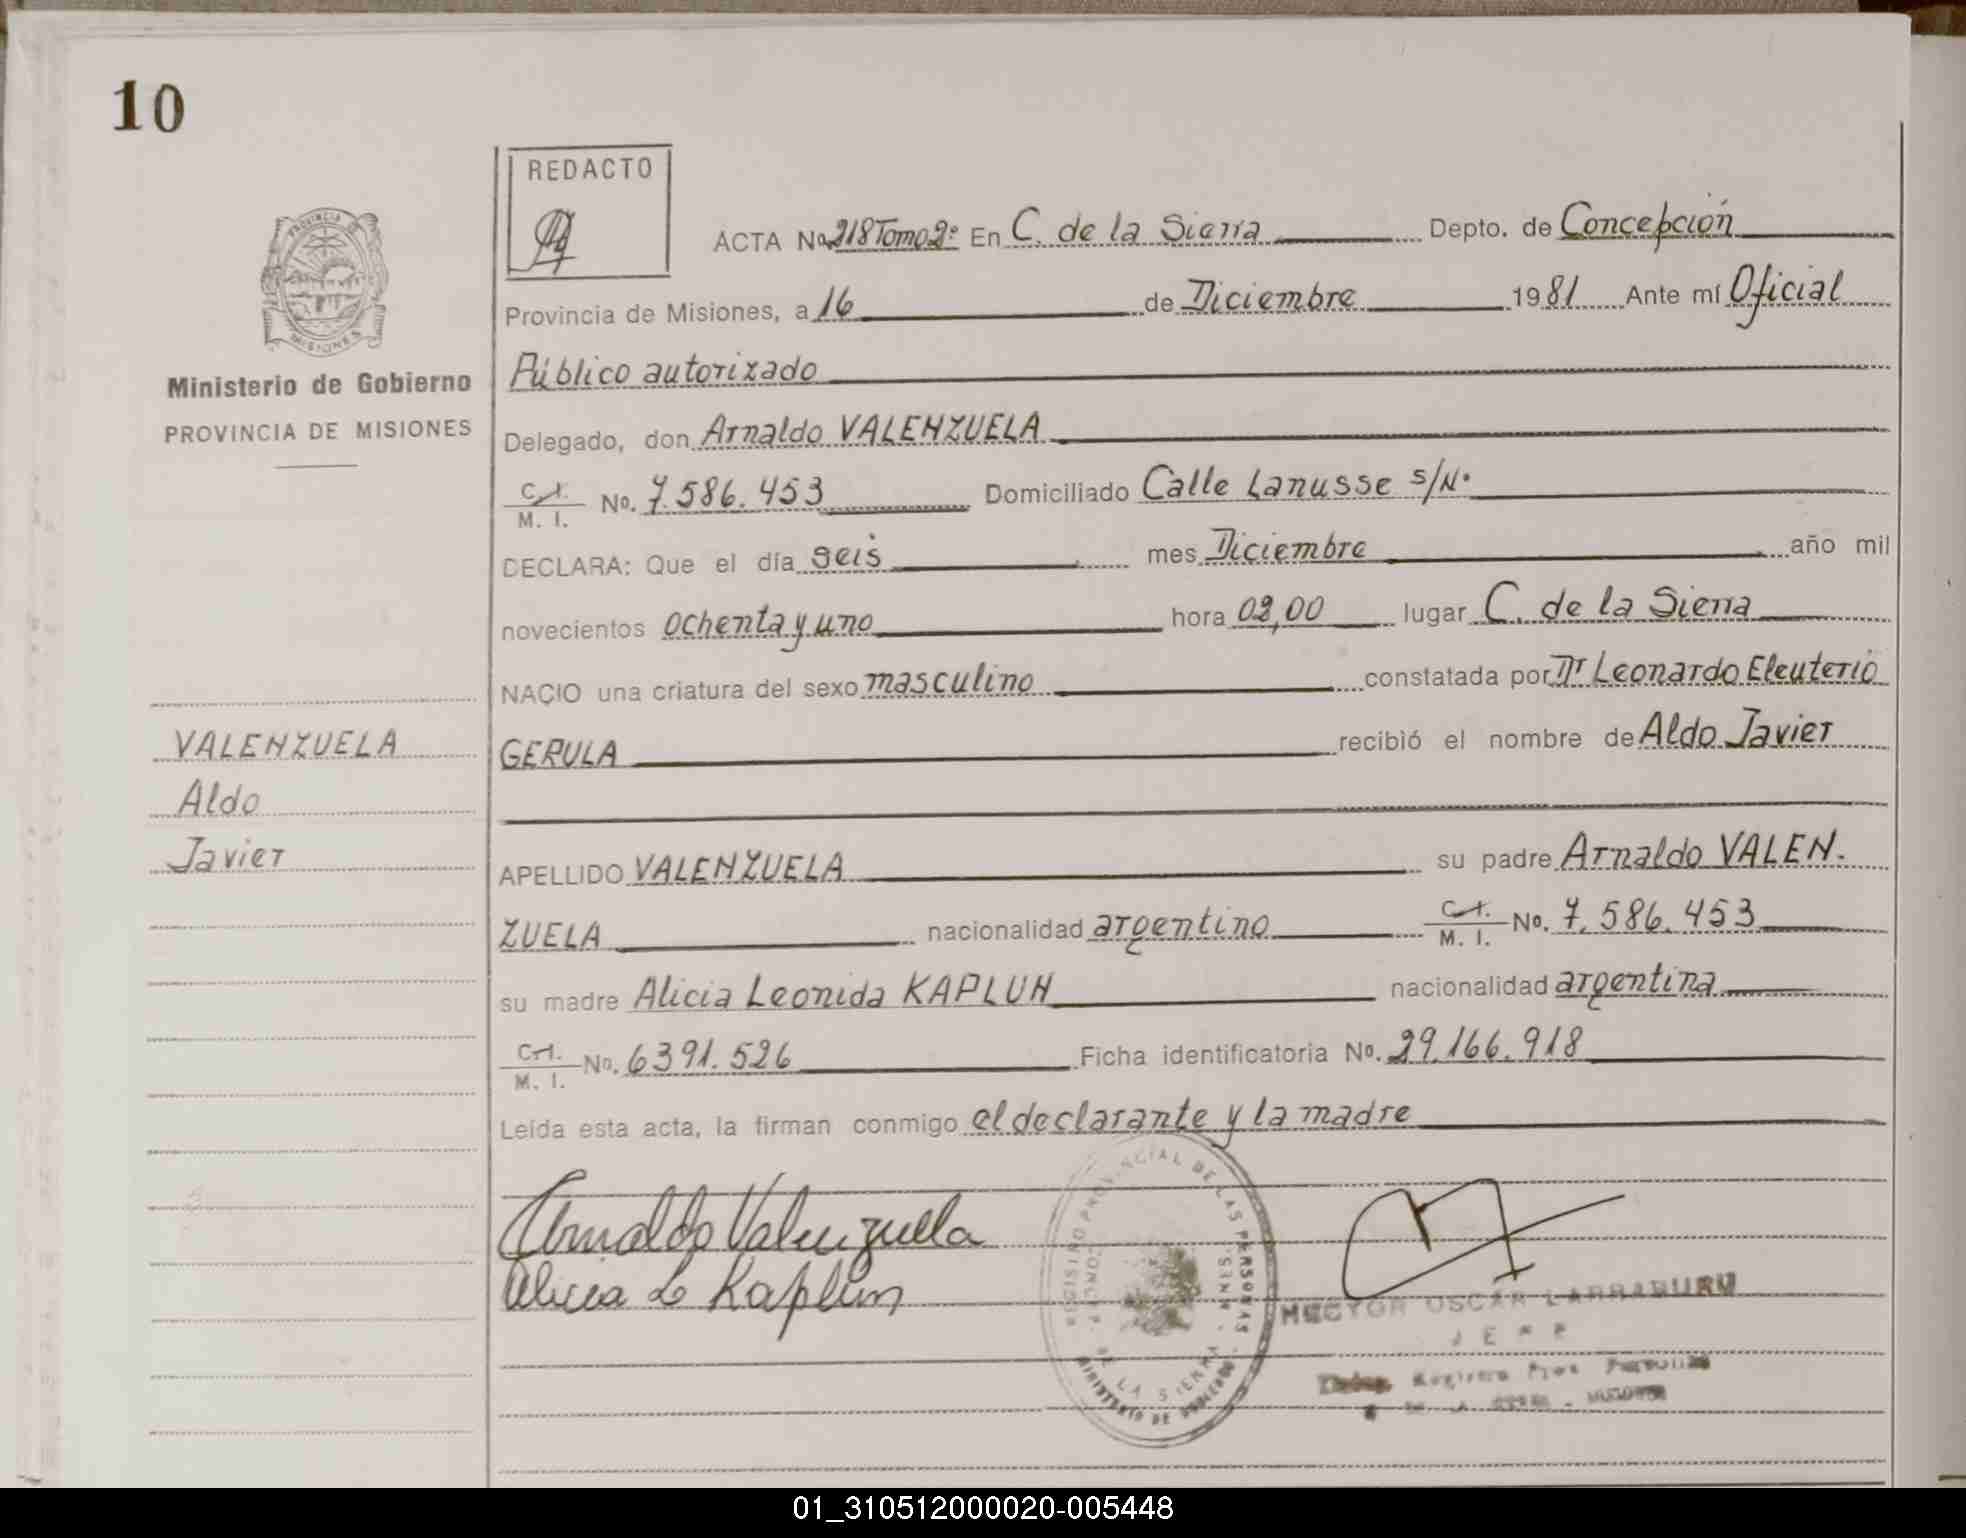 10
REDACTO
PROVINCIA DE
MISIONES
Ministerio de Gobierno
PROVINCIA DE MISIONES
ACTA No 218 Tomo 2º En C. de la Sierra Depto. de Concepción
Provincia de Misiones, a 16 de Diciembre 1981 Ante mí Oficial
Público autorizado
Delegado, don Arnaldo VALENZUELA
C.I. / M. I. No. 7.586.453 Domiciliado Calle Lanusse s/N.
DECLARA: Que el día seis mes Diciembre año mil
novecientos ochenta y uno hora 02,00 lugar C. de la Sierra
NACIO una criatura del sexo masculino constatada por Dr Leonardo Eleuterio
GERULA recibió el nombre de Aldo Javier
VALENZUELA
Aldo
Javier
APELLIDO VALENZUELA su padre Arnaldo VALEN.
ZUELA nacionalidad argentino C.I. / M. I. No. 7.586.453
su madre Alicia Leonida KAPLUN nacionalidad argentina
C.I. / M. I. No. 6391.526 Ficha identificatoria No. 29.166.918
Leída esta acta, la firman conmigo el declarante y la madre
Arnaldo Valenzuela
Alicia L Kaplun
REGISTRO PROVINCIAL DE LAS PERSONAS
MINISTERIO DE GOBIERNO
CONCEP. DE LA SIERRA
HECTOR OSCAR LARRABURU
JEFE
Registro Prov Personas
01_310512000020-005448